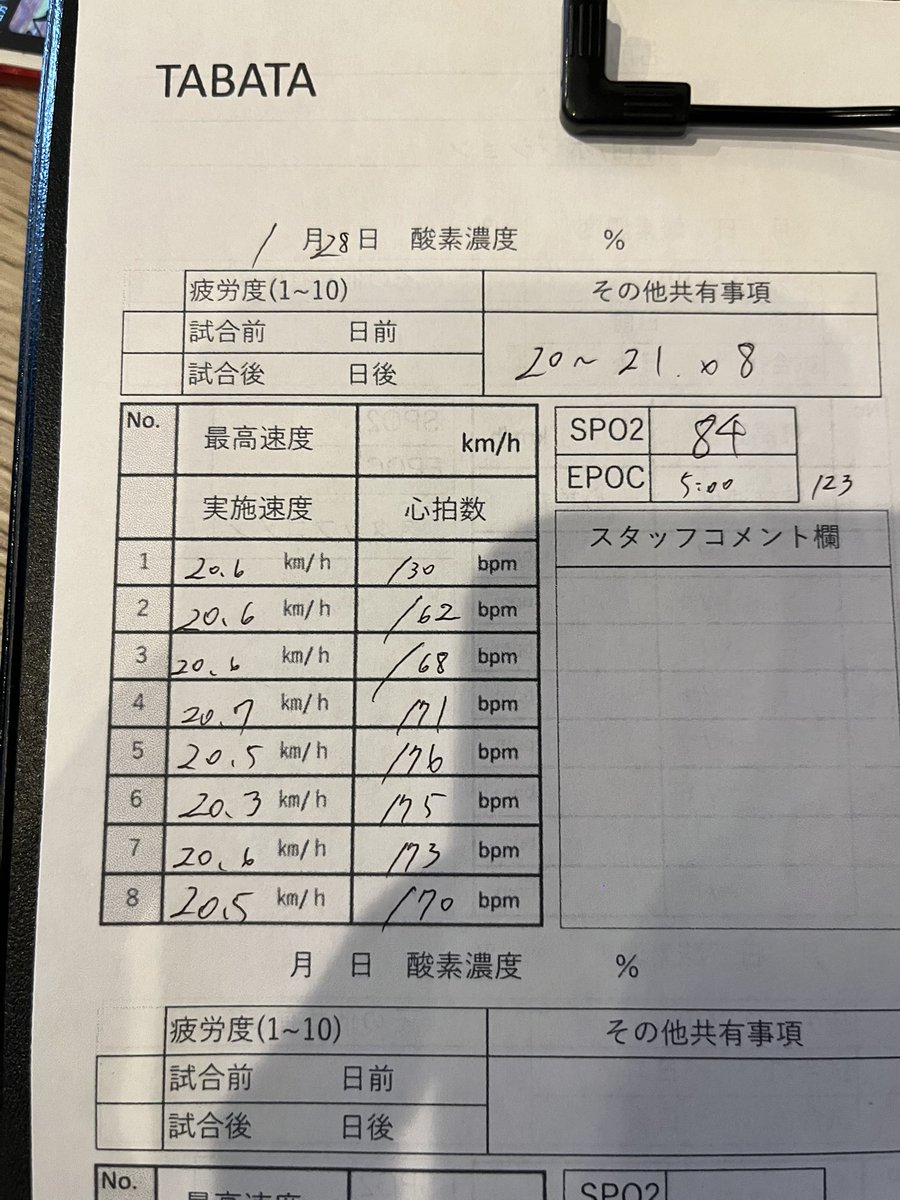 TABATA
1月28日 酸素濃度 %
疲労度(1~10) その他共有事項
試合前 日前
試合後 日後
20~21.0 8
No. 最高速度 km/h
SPO2 84
実施速度 心拍数
EPOC 5:00 123
スタッフコメント欄
1 20.6 km/h 130 bpm
2 20.6 km/h 162 bpm
3 20.6 km/h 168 bpm
4 20.7 km/h 171 bpm
5 20.5 km/h 176 bpm
6 20.3 km/h 175 bpm
7 20.6 km/h 173 bpm
8 20.5 km/h 170 bpm
月 日 酸素濃度 %
疲労度(1~10) その他共有事項
試合前 日前
試合後 日後
No. 最高速度 km/h
SPO2